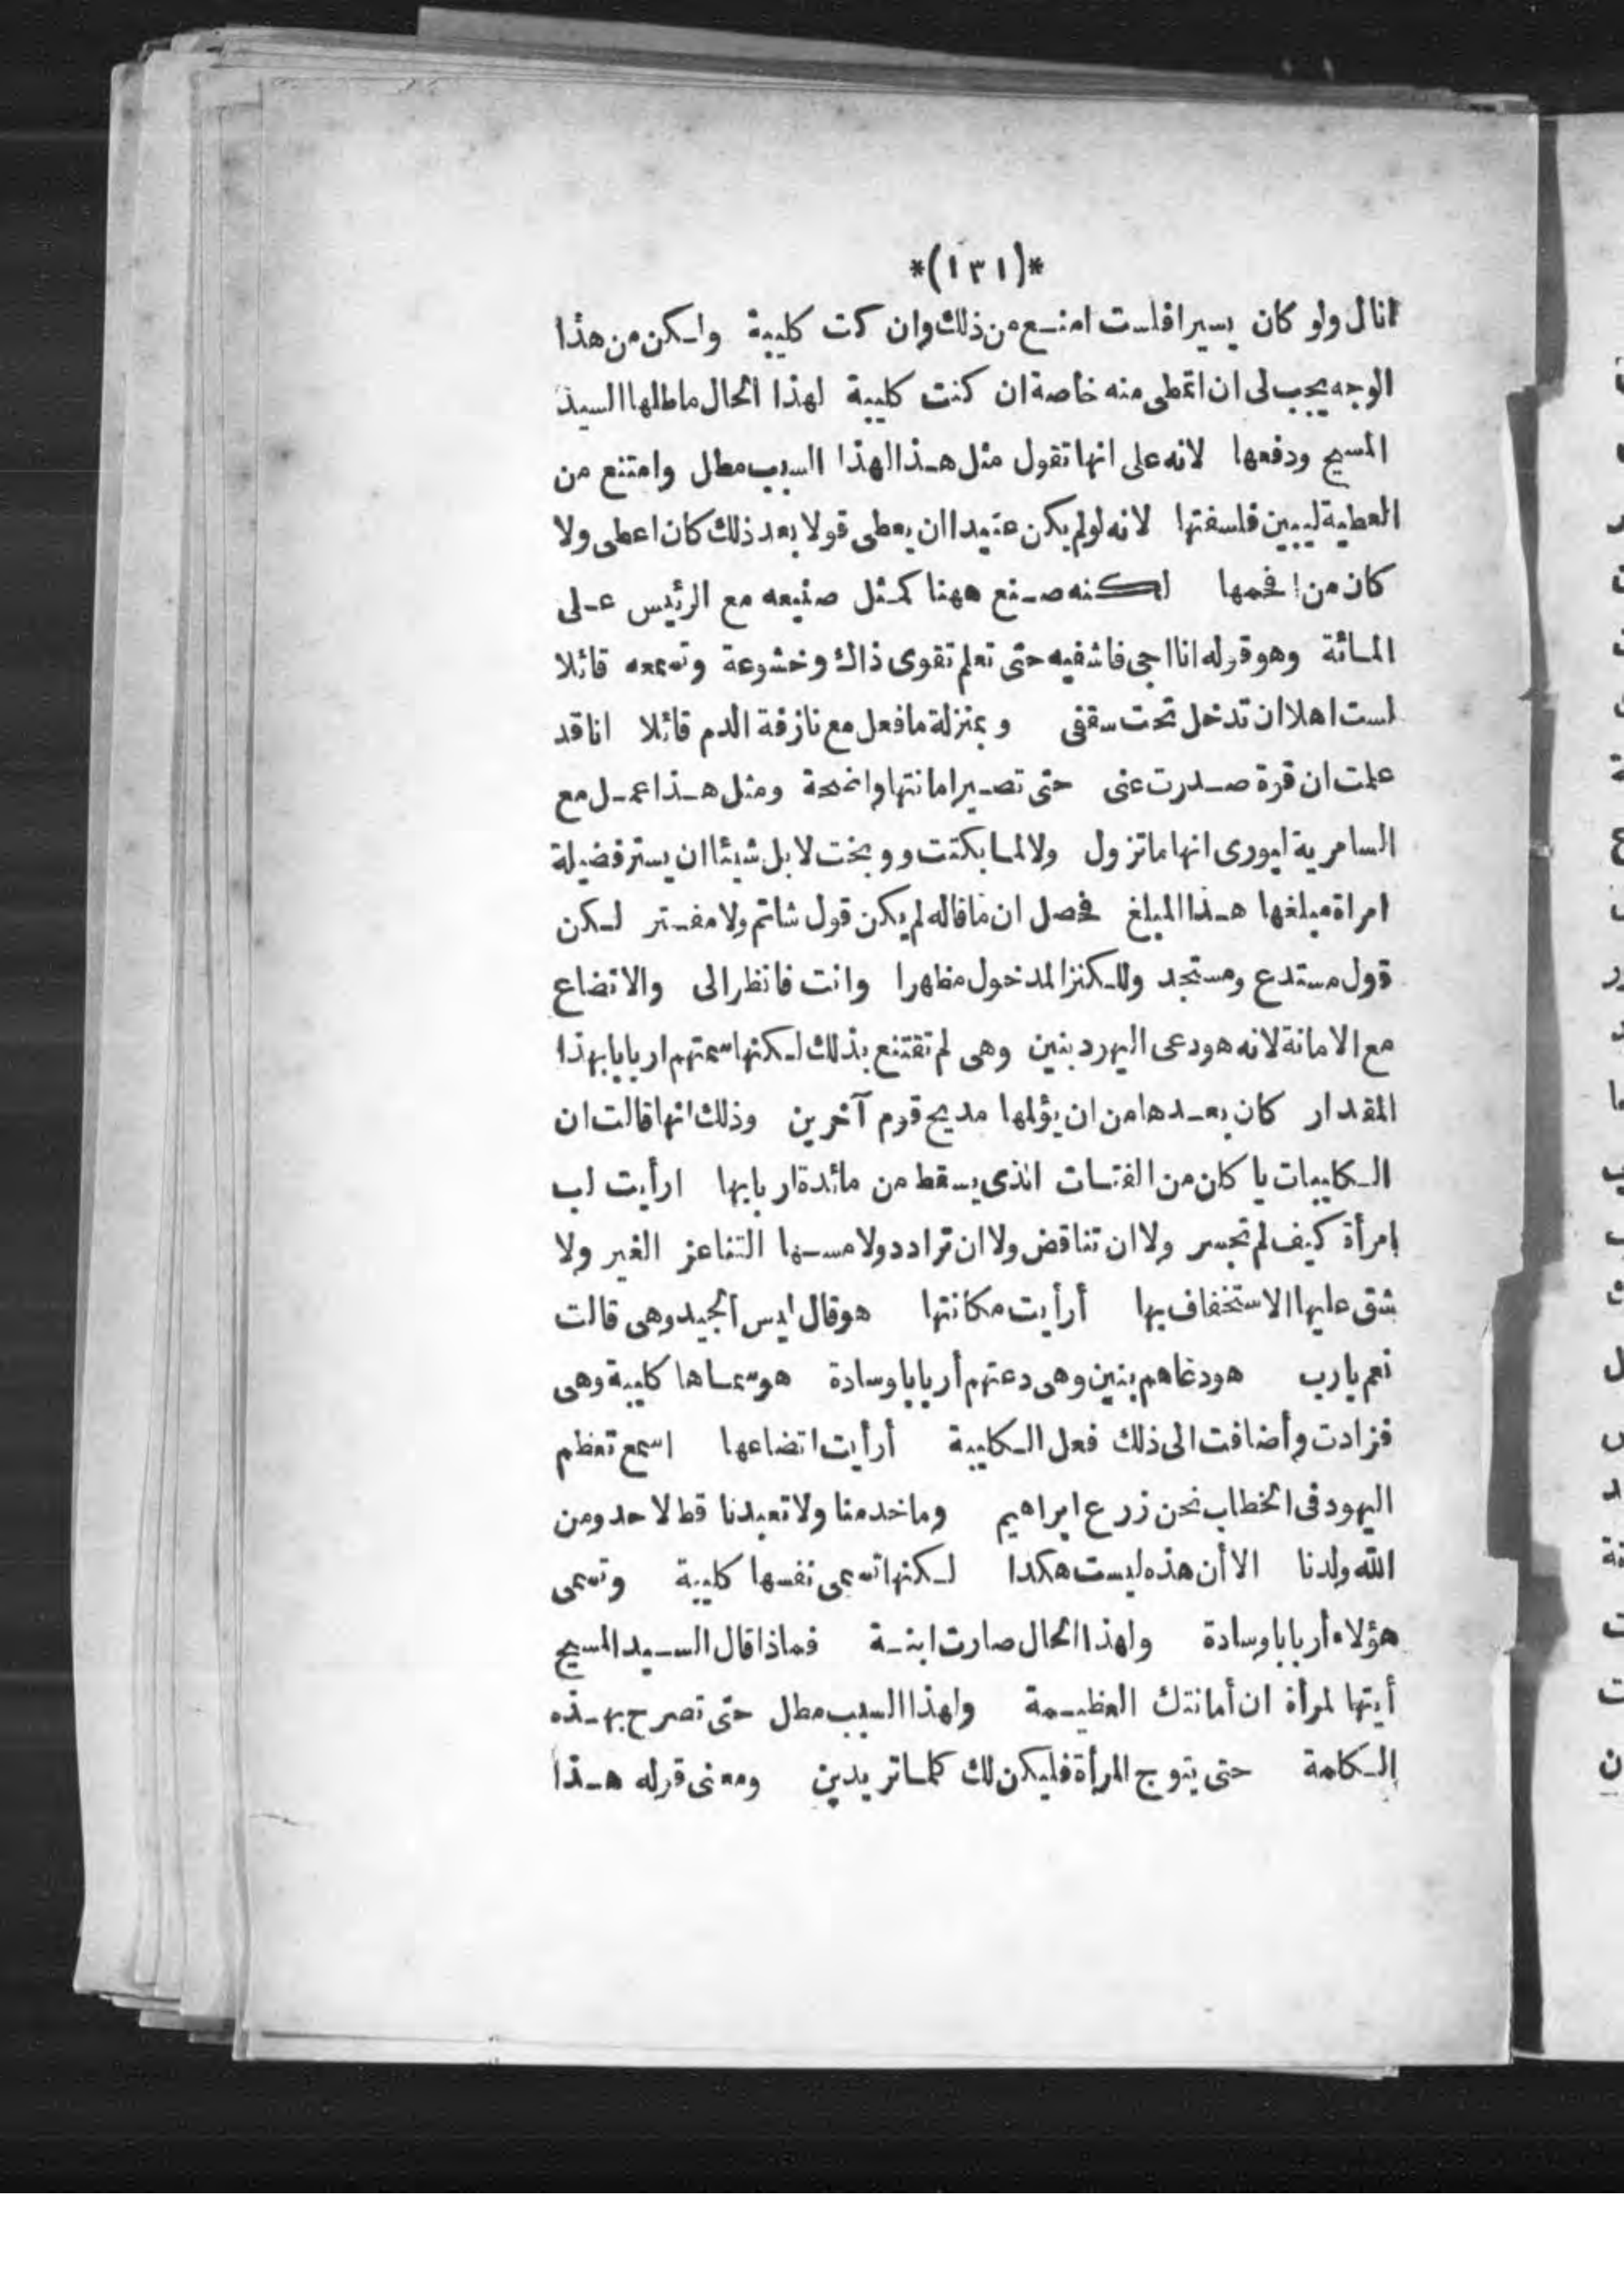 *(١٣١)*
انال ولو كان يسيرا فلست امنع من ذلك وان كنت كليبة ولكن من هذا
الوجه يجب لى ان اتمطى منه خاصة ان كنت كليبة لهذا الحال ماطلها السيد
المسيح ودفعها لانه على انها تقول مثل هذا لهذا السبب مطل وامتنع من
العطية ليبين فلسفتها لانه لو لم يكن عتيدا ان يعطى قولا بعد ذلك كان اعطى ولا
كان من افحمها لكنه صنع ههنا كمثل صنيعه مع الرئيس على
المائة وهو قوله انا اجى فاشفيه حتى تعلم تقوى ذاك وخشوعة وتسمعه قائلا
لست اهلا ان تدخل تحت سقفى وبمنزلة مافعل مع نازفة الدم قائلا انا قد
علمت ان قوة صدرت عنى حتى تصير امانتها واضحة ومثل هذا عمل مع
السامرية ليورى انها ماتزول ولا لما بكتت ووبخت لابل شيئا ان يستر فضيلة
امراة مبلغها هذا المبلغ فحصل ان ماقاله لم يكن قول شاتم ولا مفتر لكن
قول مستدع ومستجد وللكنز المدخول مظهرا وانت فانظر الى والاتضاع
مع الامانة لانه هو دعى اليهود بنين وهى لم تقتنع بذلك لكنها سمتهم اربابا بهذا
المقدار كان بعدها من ان يؤلمها مديح قوم آخرين وذلك انها قالت ان
الكليبات ياكان من الفتات الذى يسقط من مائدة اربابها ارأيت لب
امرأة كيف لم تجسر ولا ان تناقض ولا ان تراددولا مسها التناعز الغير ولا
شق عليها الاستخفاف بها أرأيت مكانتها هو قال ليس الجيد وهى قالت
نعم يارب هو دعاهم بنين وهى دعتهم أربابا وسادة هو سماها كليبة وهى
فزادت وأضافت الى ذلك فعل الكليبة أرأيت اتضاعها اسمع تعظم
اليهود فى الخطاب نحن زرع ابراهيم وما خدمنا ولا تعبدنا قط لاحد ومن
الله ولدنا الا أن هذه ليست هكدا لكنها تسمى نفسها كليبة وتسمى
هؤلاء أربابا وسادة ولهذا الحال صارت ابنة فماذا قال السيد المسيح
أيتها لمرأة ان أمانتك العظيمة ولهذا السبب مطل حتى تصرح بهذه
الكلمة حتى يتوج المرأة فليكن لك كلما تريدين ومعنى قوله هذا